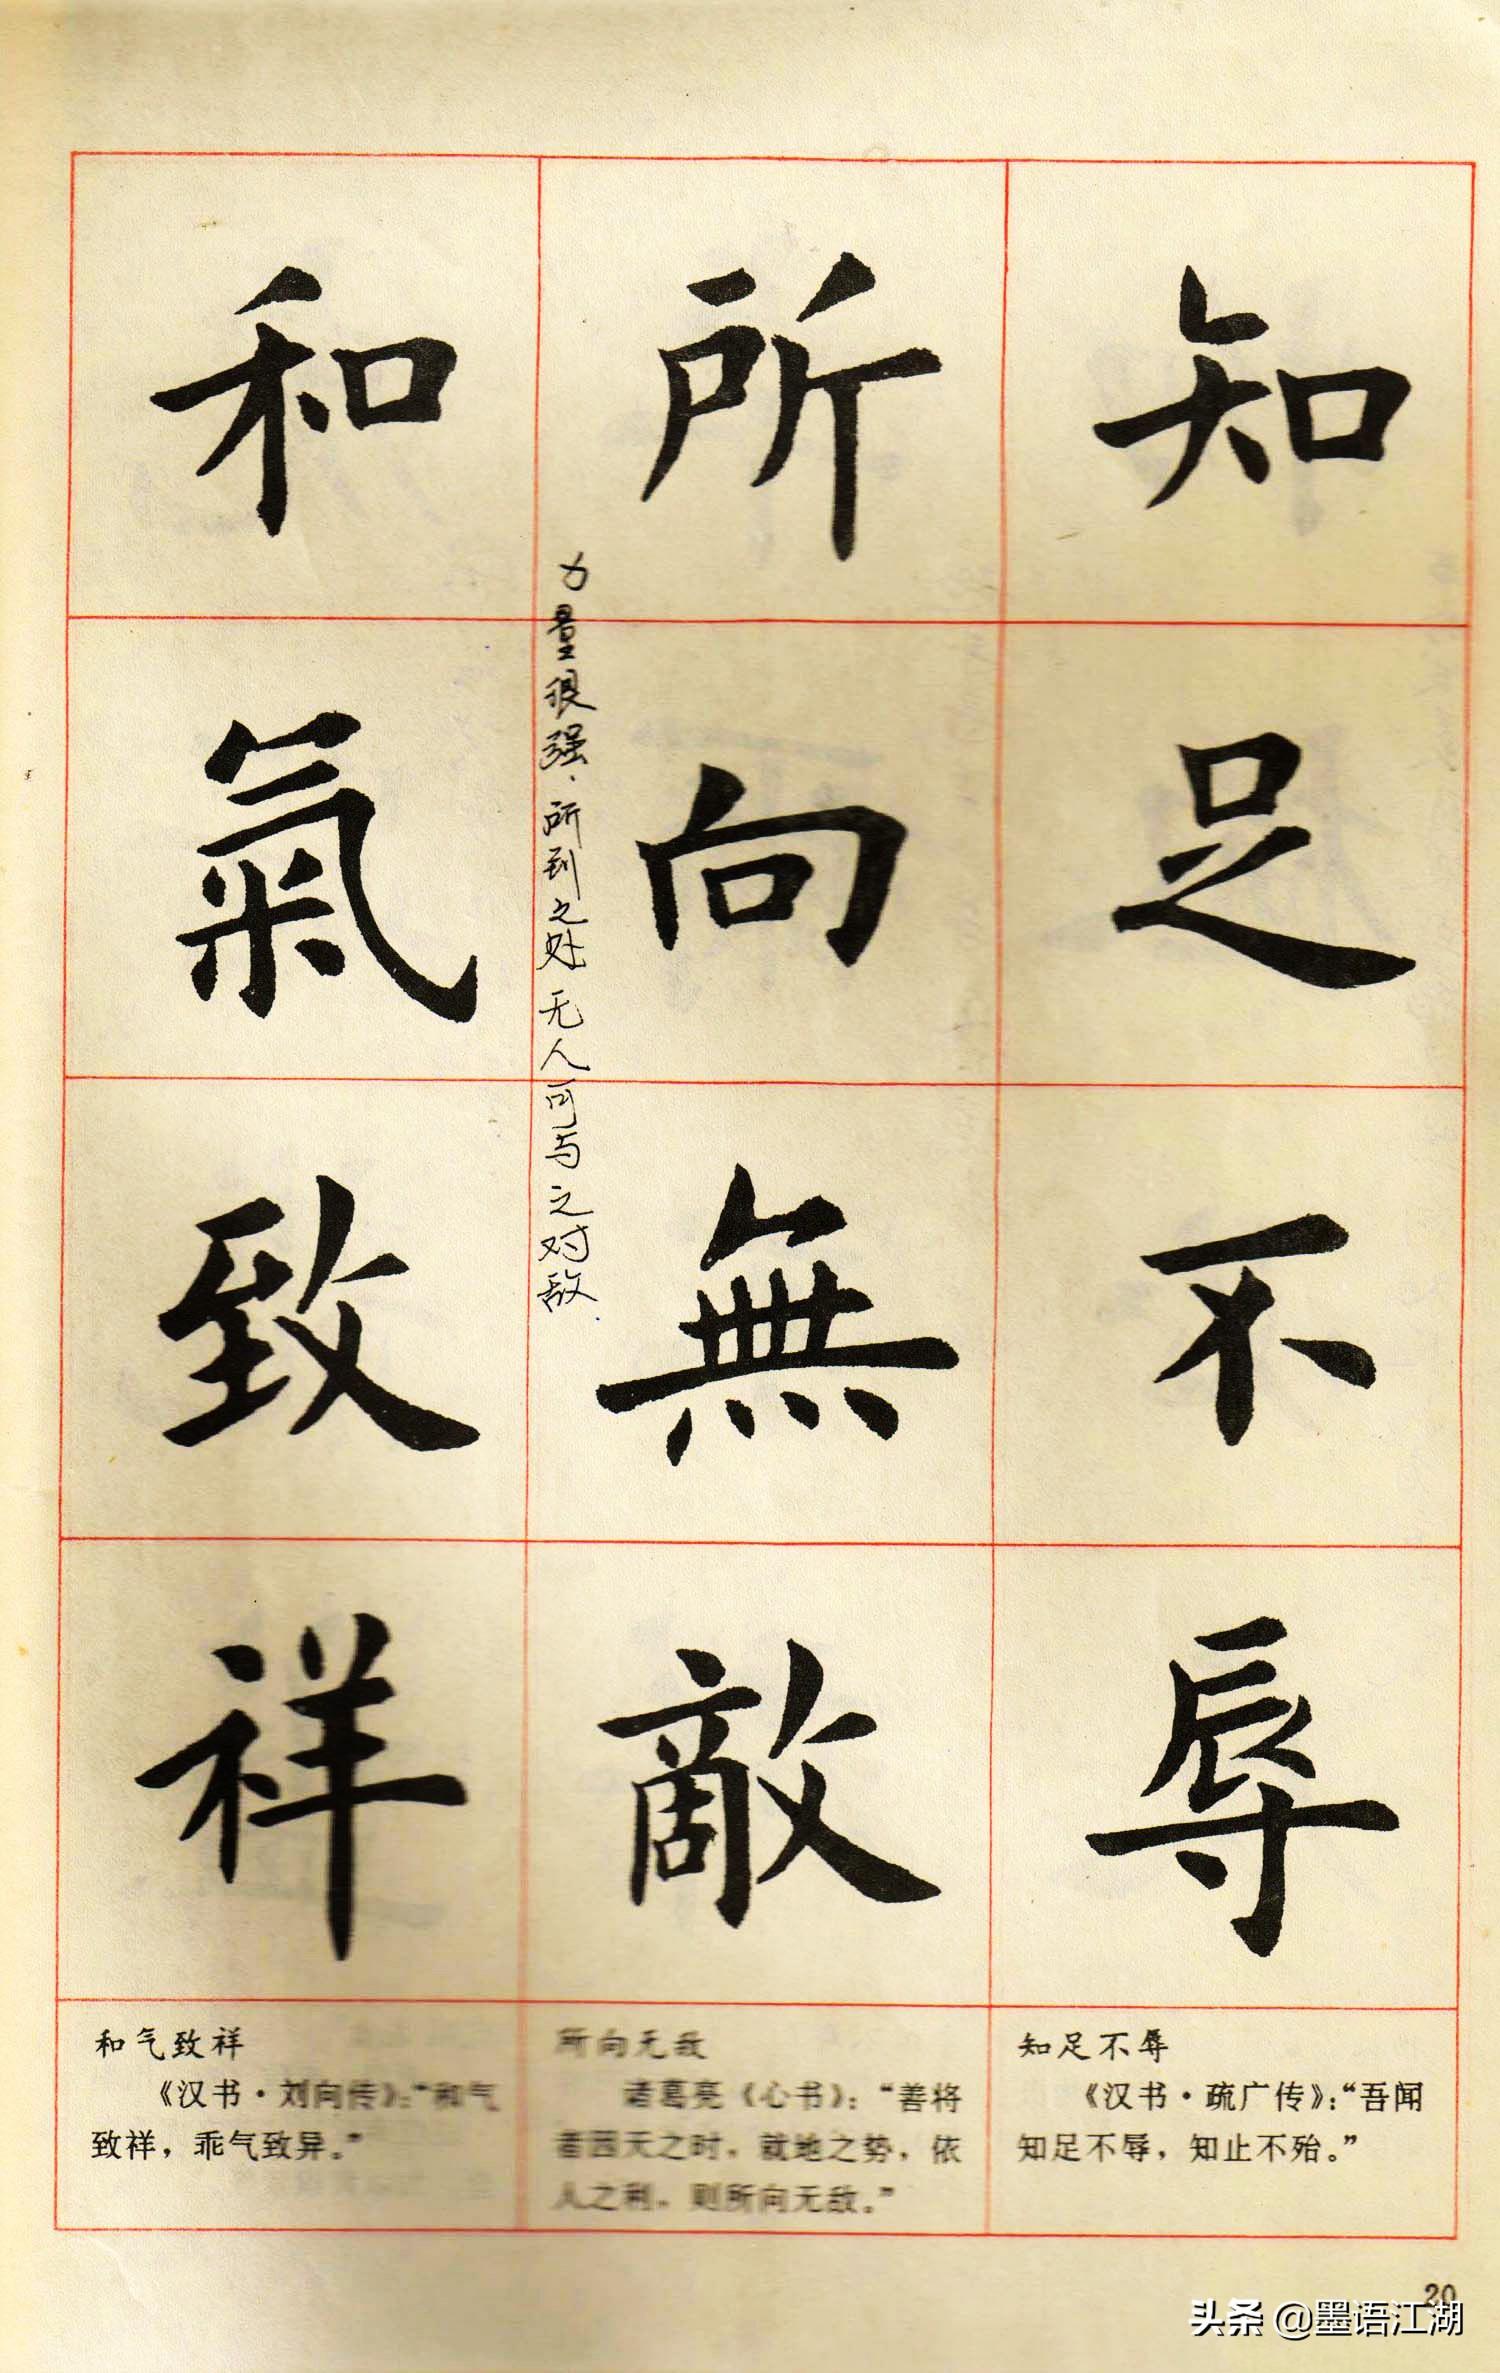 知足不辱
所向無敵
和氣致祥
力量很强、所到之处无人可与之对敌.
知足不辱
《汉书·疏广传》：“吾闻
知足不辱，知止不殆。”
所向无敌
诸葛亮《心书》：“善将
者因天之时，就地之势，依
人之利，则所向无敌。”
和气致祥
《汉书·刘向传》：“和气
致祥，乖气致异。”
20
头条 @墨语江湖